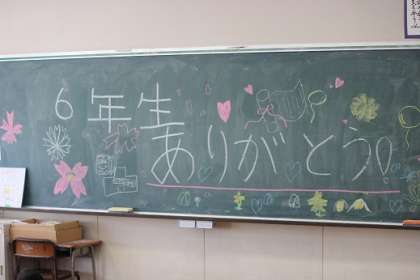 6年生
ありがとう